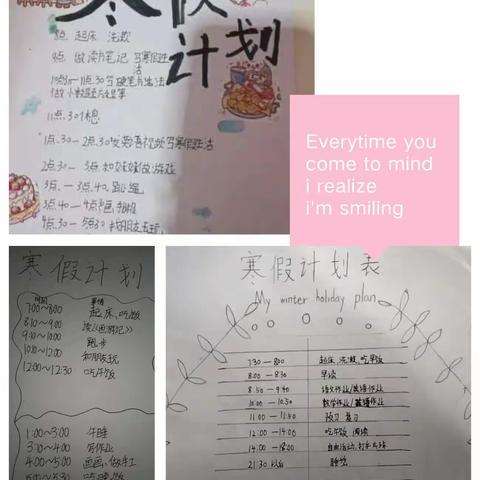 寒假计划
8点 起床 洗漱
9点 做读书笔记 写寒假生活
做小数题
11点.30休息
1点.30-2点.30发英语视频写寒假生活
2点.30-3点和妹妹做游戏
3点.-3点.40.跳绳
3点.40-4点
4点.30-
Everytime you
come to mind
i realize
i'm smiling
寒假计划
时间 事情
7:00~8:00 起床、吃饭
8:10~9:00 读《西游记》
9:10~10:00 跑步
10:10~12:00 和朋友玩
12:00~12:30 吃午饭
1:00~3:00 午睡
3:10~4:00 写作业
4:00~5:00 画画、做手工
吃晚饭
寒假计划表
My winter holiday plan
7:30-8:00 起床 洗漱、吃早饭
8:00-8:30 早读
8:50-9:40 语文作业/英语作业
10:00-10:50 数学作业/英语作业
11:00-11:40 预习 复习
12:00-14:00 吃午饭 阅读
14:00- 自由活动、打乒乓球
21:30以后 睡觉